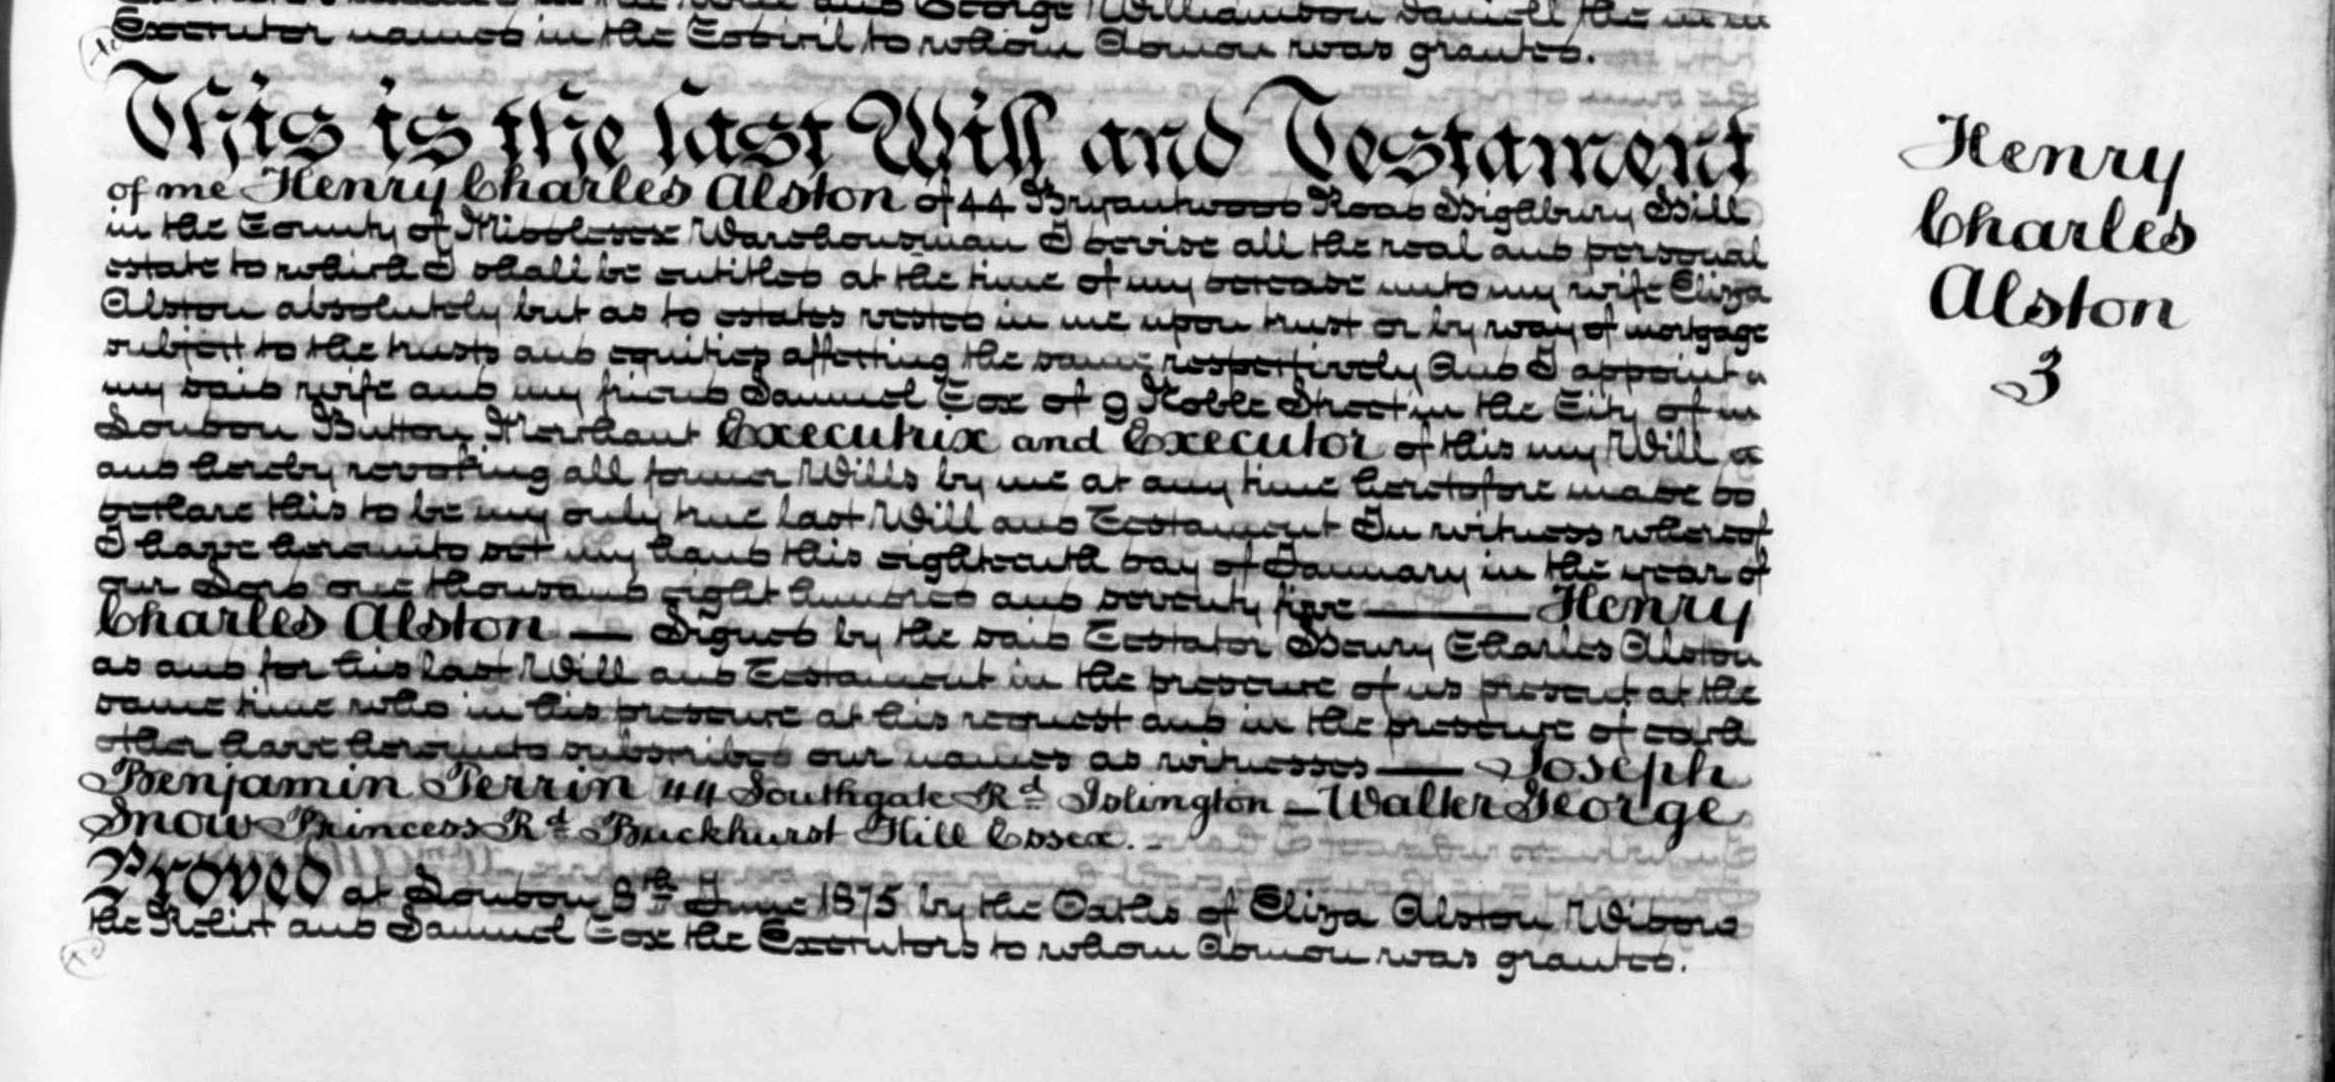 and George Williamson Daniell the
Executor named in the Codicil to whom Admon was granted.
This is the last Will and Testament
of me Henry Charles Alston of 44 Bryantwood Road Highbury Hill
in the County of Middlesex Warehouseman I devise all the real and personal
estate to which I shall be entitled at the time of my decease unto my wife Eliza
Alston absolutely but as to estates vested in me upon trust or by way of mortgage
subject to the trusts and equities affecting the same respectively And I appoint
my said wife and my friend Samuel Cox of 9 Noble Street in the City of
London Button Merchant Executrix and Executor of this my Will
and hereby revoking all former Wills by me at any time heretofore made do
declare this to be my only true last Will and Testament In witness whereof
I have hereunto set my hand this eighteenth day of January in the year of
our Lord one thousand eight hundred and seventy five — Henry
Charles Alston — Signed by the said Testator Henry Charles Alston
as and for his last Will and Testament in the presence of us present at the
same time who in his presence at his request and in the presence of each
other have hereunto subscribed our names as witnesses — Joseph
Benjamin Perrin 44 Southgate Rd Islington — Walter George
Snow Princess Rd Buckhurst Hill Essex. -
Proved at London 8th June 1875 by the Oaths of Eliza Alston Widow
the Relict and Samuel Cox the Executors to whom Admon was granted.
Henry
Charles
Alston
3